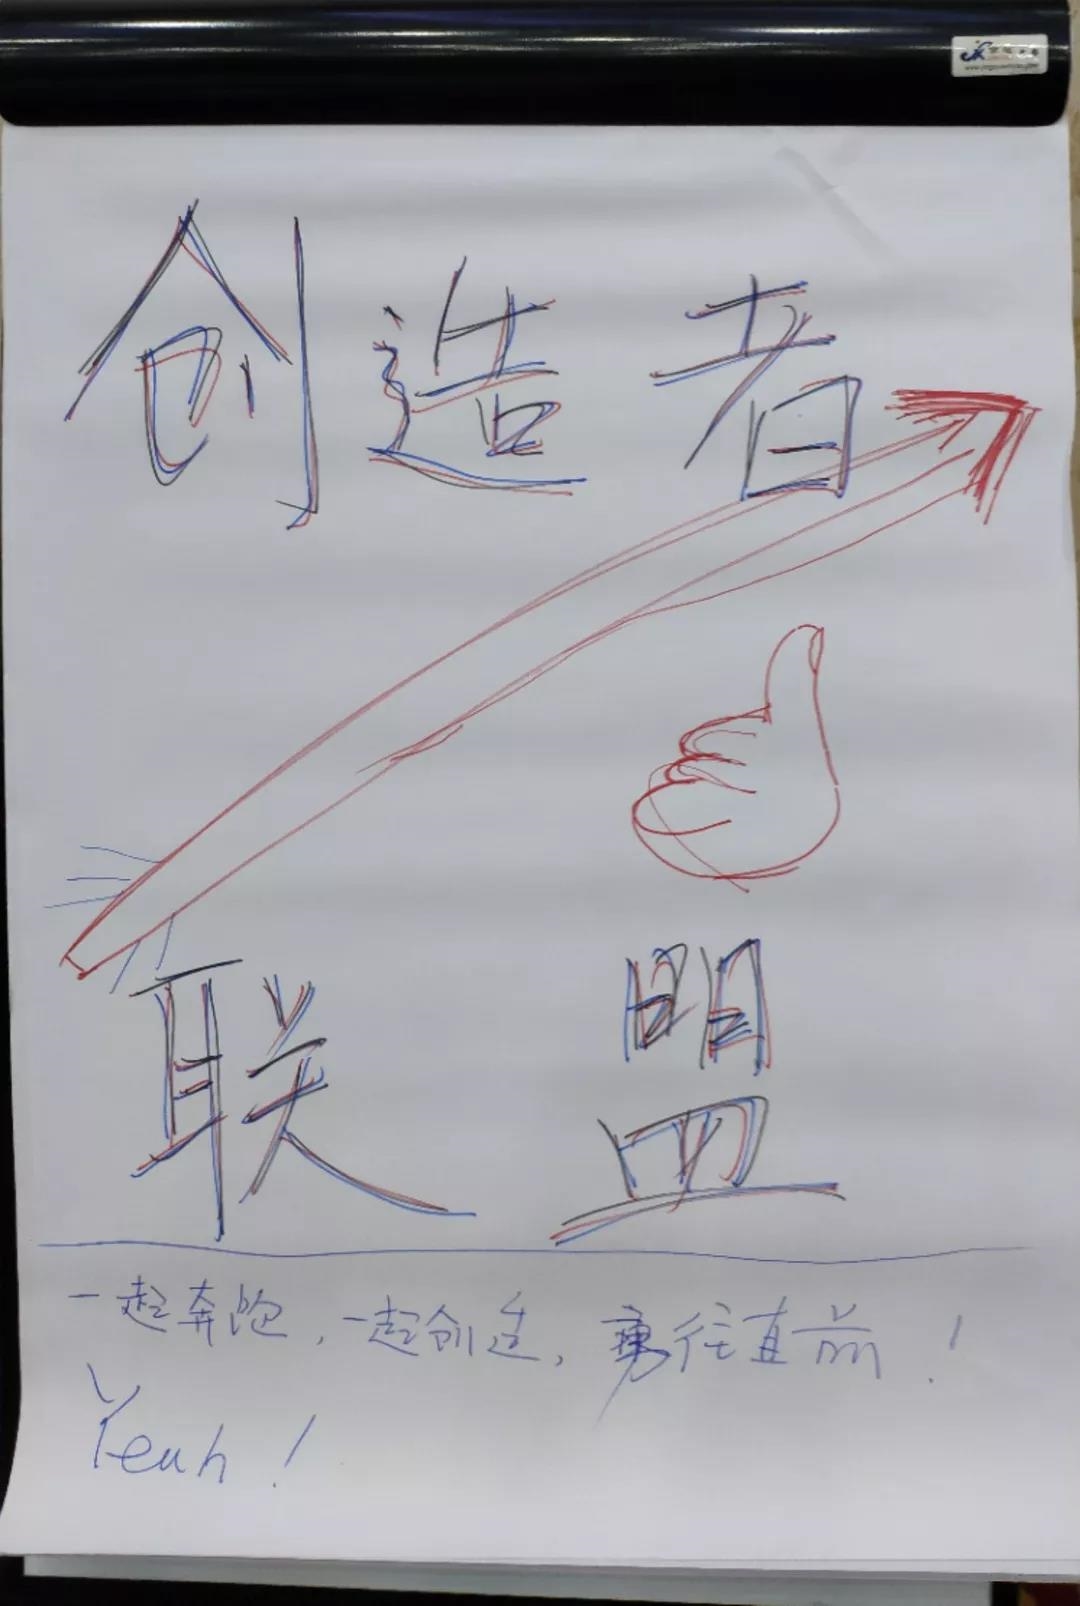 创造者
联盟
一起奔跑，一起创造，勇往直前！
Yeah！